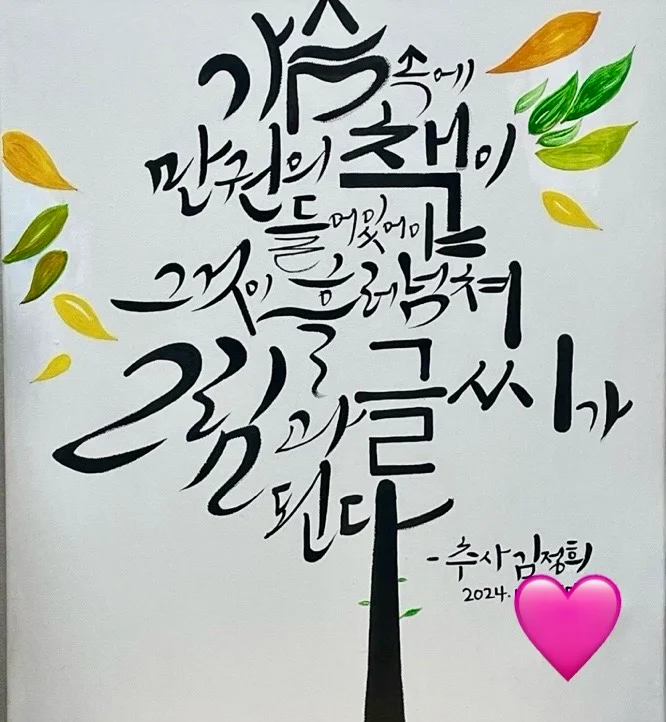 가슴속에
만권의 책이
들어있어야
그것이 흘러넘쳐
그림과 글씨가
된다
- 추사 김정희
2024.